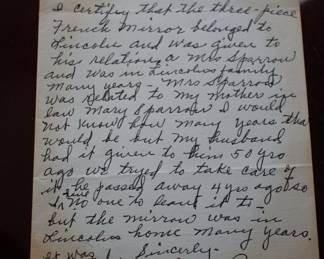 I certify that the three-piece
French Mirror belonged to
Lincoln and was given to
his relation, a Mrs Sparrow
and was in Lincolns family
Many years - Mrs Sparrow
was related to My Mother in
law Mary Sparrow I would
Not know how many years tha
would be but My husband
had it given to him 50 yrs
ago we tryed to take care of
it he passed away 4 yrs ago so
no one to leave it to -
but the mirror was in
Lincolns home Many years.
it was Sincerely-